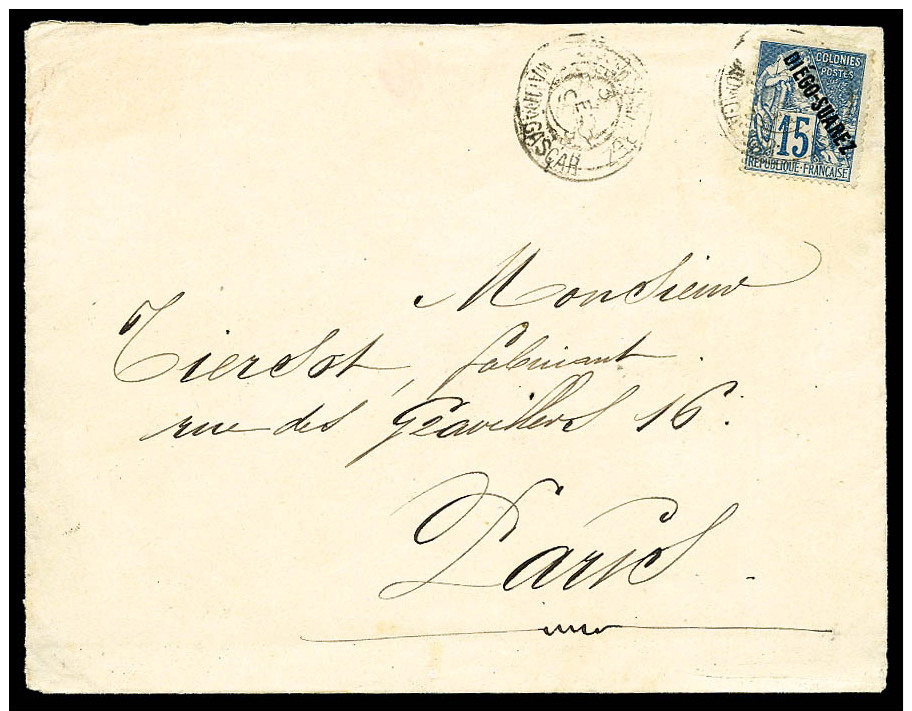 MADAGASCAR
COLONIES
POSTES
DIEGO-SUAREZ
15
RÉPUBLIQUE·FRANÇAISE
Monsieur
Tiersot, fabricant
rue des Gravilliers 16.
Paris.